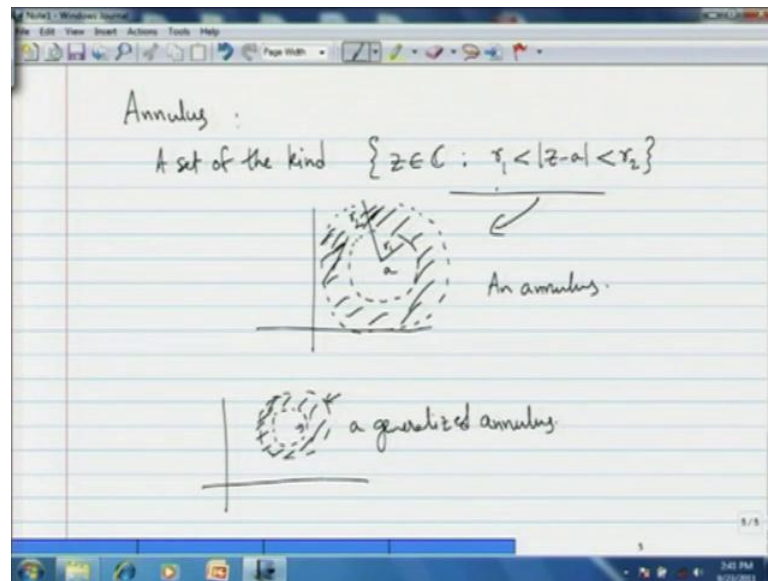 Note1 - Windows Journal
File Edit View Insert Actions Tools Help
Page Width
Annulus :
A set of the kind { z ∈ ℂ : r₁ < |z-a| < r₂ }
r₂
r₁
a
An annulus.
a generalized annulus.
5/5
5
2:41 PM
9/23/2011